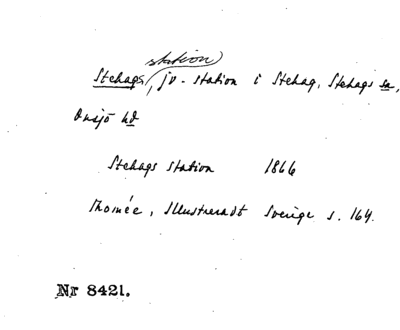 station
Stehags, jv-station i Stehag, Stehags sn,
Onsjö hd
Stehags station 1866
Thomée, Illustreradt Sverige s. 164.
Nr 8421.